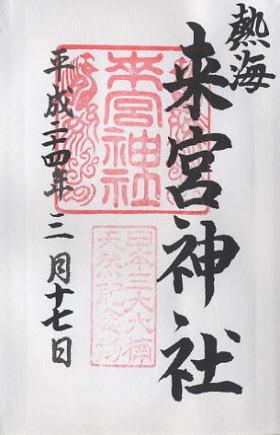 熱海
来宮神社
来宮神社
日本三大大樟
天然記念物
平成二十四年三月十七日